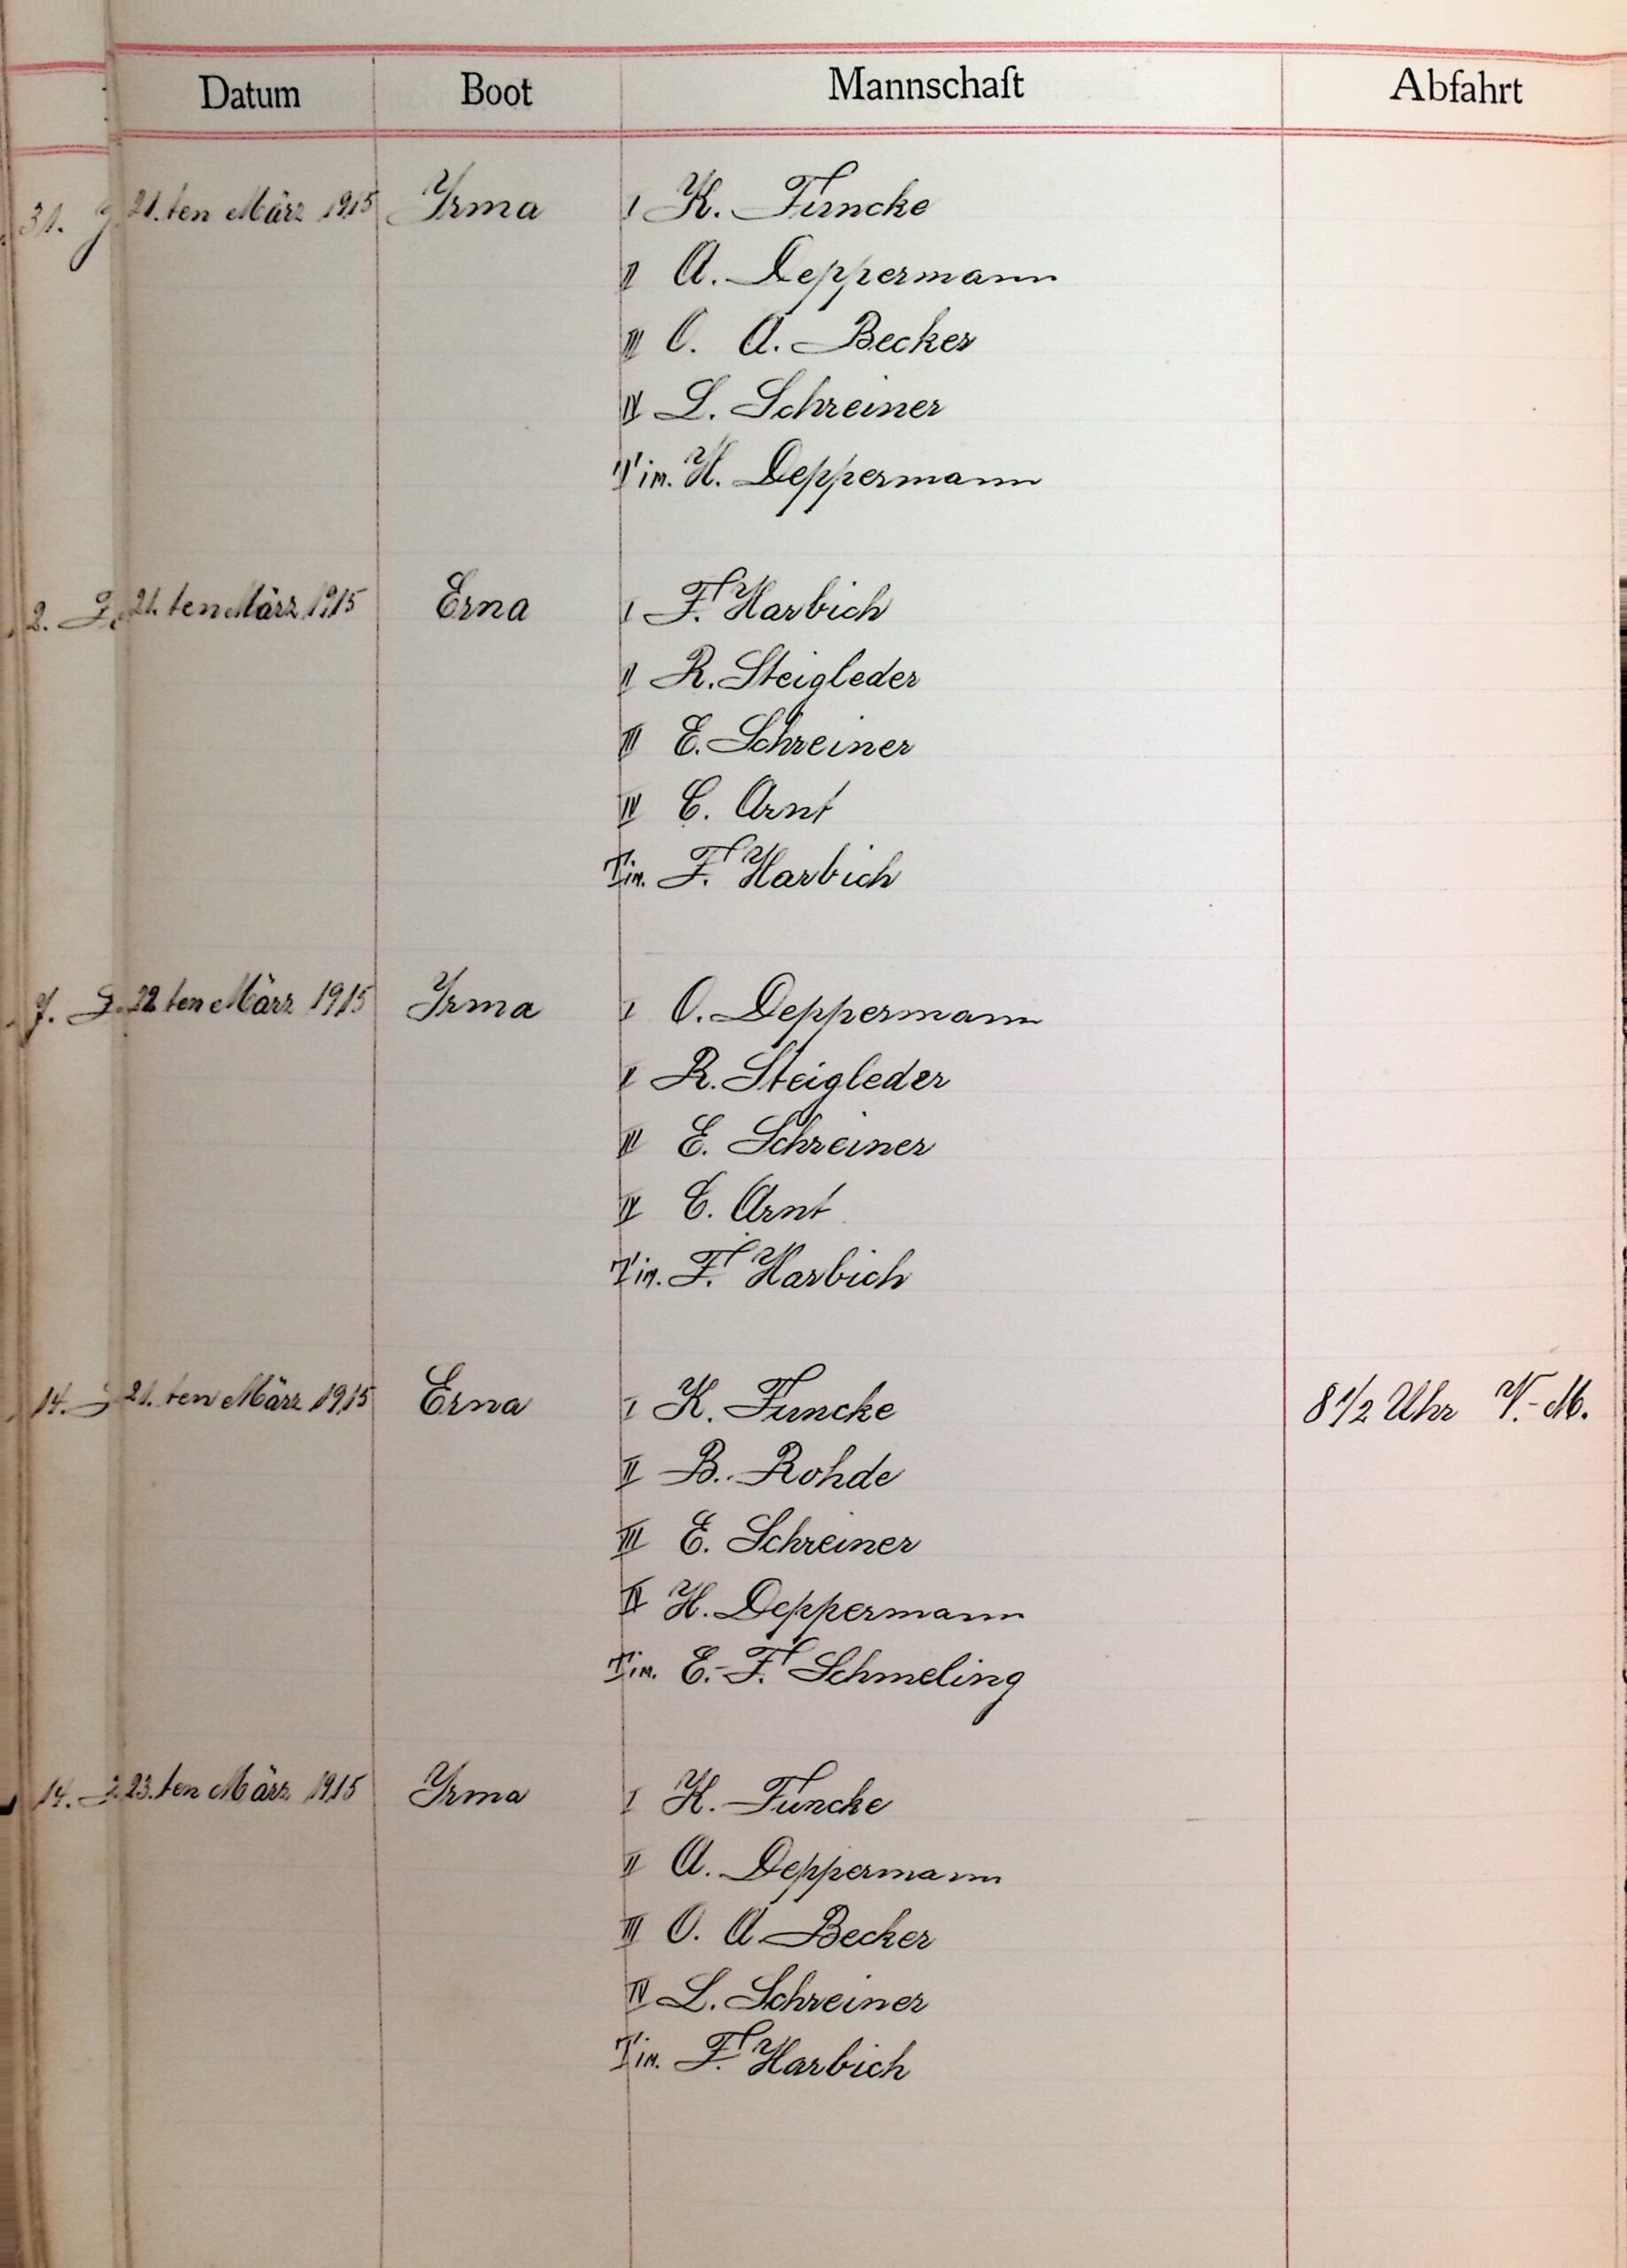 Datum Boot Mannschaft Abfahrt
31. 21. ten März 1915 Yrma I K. Funcke
II A. Deppermann
III O. A. Becker
IV L. Schreiner
Tim. H. Deppermann
2. 21. ten März 1915 Erna I F. Harbich
II R. Steigleder
III E. Schreiner
IV C. Arnt
Tim. F. Harbich
7. 22 ten März 1915 Yrma I O. Deppermann
II R. Steigleder
III E. Schreiner
IV C. Arnt
Tim. F. Harbich
14. 21. ten März 1915 Erna I K. Funcke 8 1/2 Uhr V.-M.
II B. Rohde
III E. Schreiner
IV H. Deppermann
Tim. E.-F. Schmeling
14. 23. ten März 1915 Yrma I K. Funcke
II A. Deppermann
III O. A. Becker
IV L. Schreiner
Tim. F. Harbich